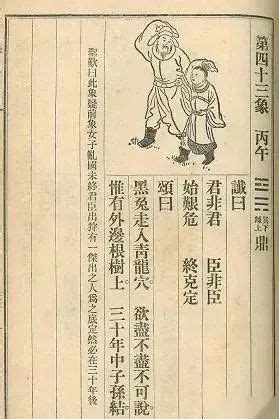 第四十三象 丙午
巽下離上 鼎
讖曰
君非君 臣非臣
始艱危 終克定
頌曰
黑兔走入青龍穴 欲盡不盡不可說
惟有外邊根樹上 三十年中子孫結
聖歎曰此象疑前象女子亂國未終君臣出狩有一傑出之人為之底定然必在三十年後